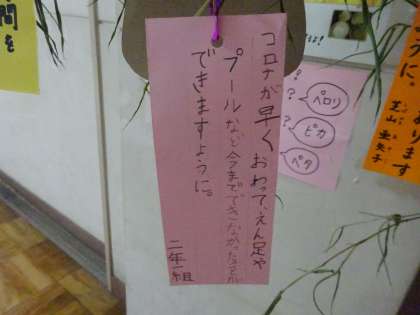 コロナが早くおわって、えん足や
プールなど今までできなかったことが
できますように。
二年一組
ペロリ
ピカ
ペタ
?
?
?
問を
ように。
ります